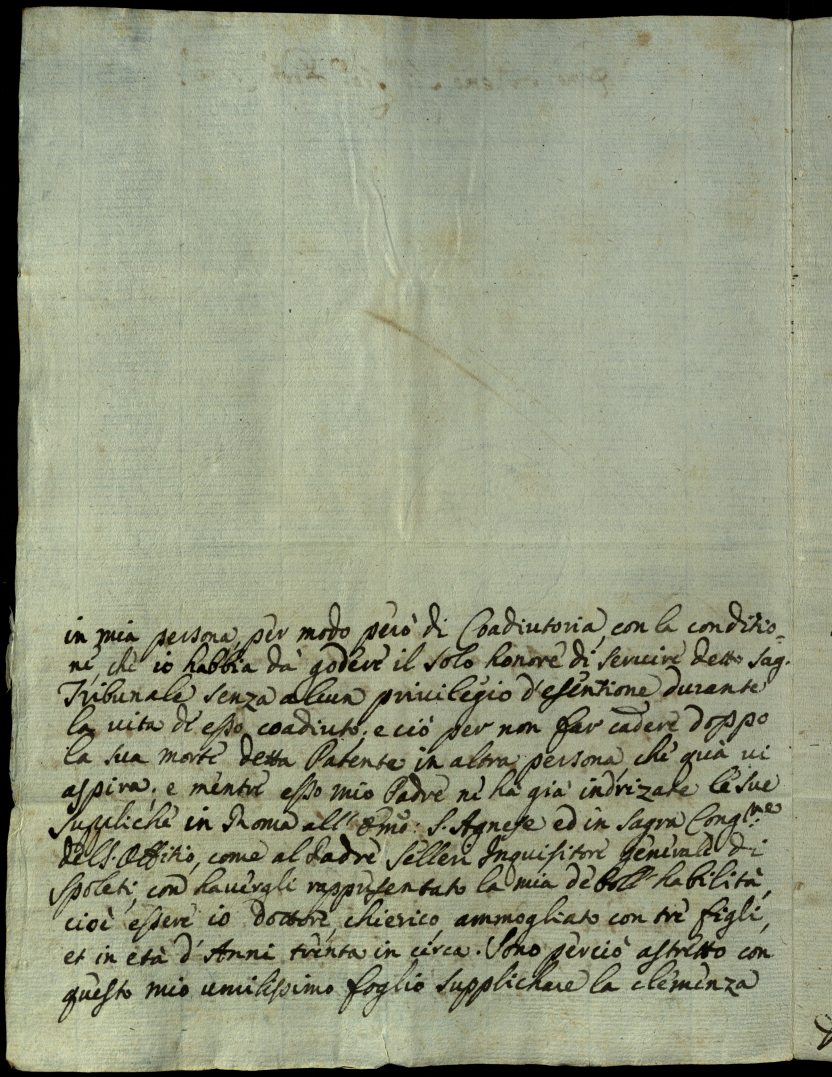 in mia persona, per modo però di Coadiutoria, con la conditio=
ne, che io habbia da godere il solo honore di servire detto Sag.
Tribunale senza alcun privilegio d'esentione durante
la vita di esso coadiuto, e ciò per non far cadere doppo
la sua morte detta Patente in altra persona che quà vi
aspira; e mentre esso mio Padre ne ha già indrizate le sue
suppliche in Roma all' Emo: S. Agnese ed in Sagra Cong:ne
del S. Offitio, come al Padre Selleri Inquisitore Generale di
Spoleti, con havergli rappresentato la mia deboll' habilità,
cioè essere io dottore, chierico ammogliato con trè figli,
et in età d'Anni trenta in circa. Sono perciò astretto con
questo mio umilissimo foglio supplichare la clemenza